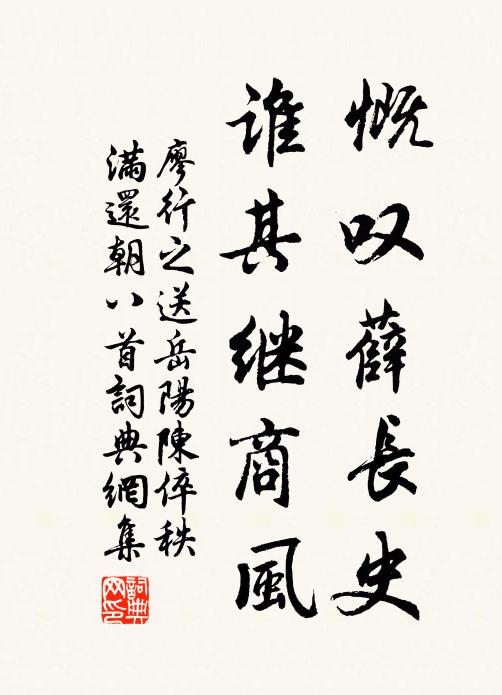 慨叹薛長史
誰其继商風
廖行之送岳陽陳倅秩
滿還朝八首詞典網集
詞典網印